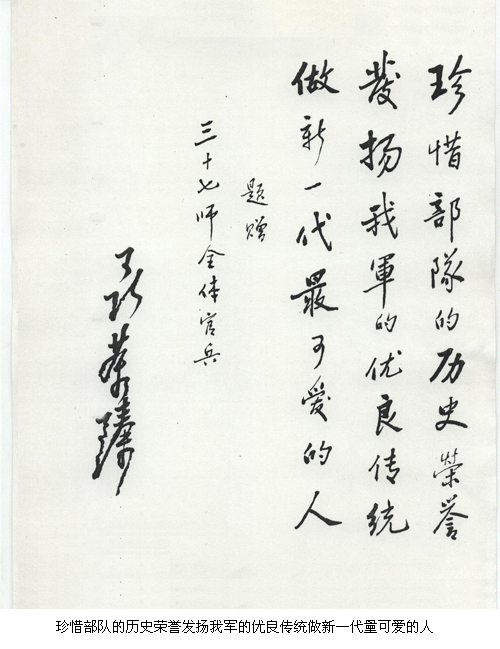 珍惜部隊的历史榮誉
發扬我軍的优良传统
做新一代最可愛的人
题赠
三十七师全体官兵
聂荣臻
珍惜部队的历史荣誉发扬我军的优良传统做新一代量可爱的人